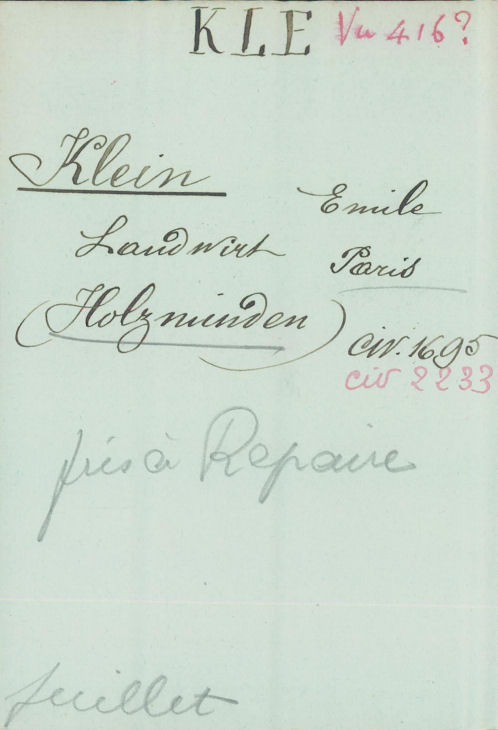 KLE Vu 416?
Klein Emile
Landwirt Paris
(Holzminden) civ. 1695
civ 2233
pris à Repaire
Juillet